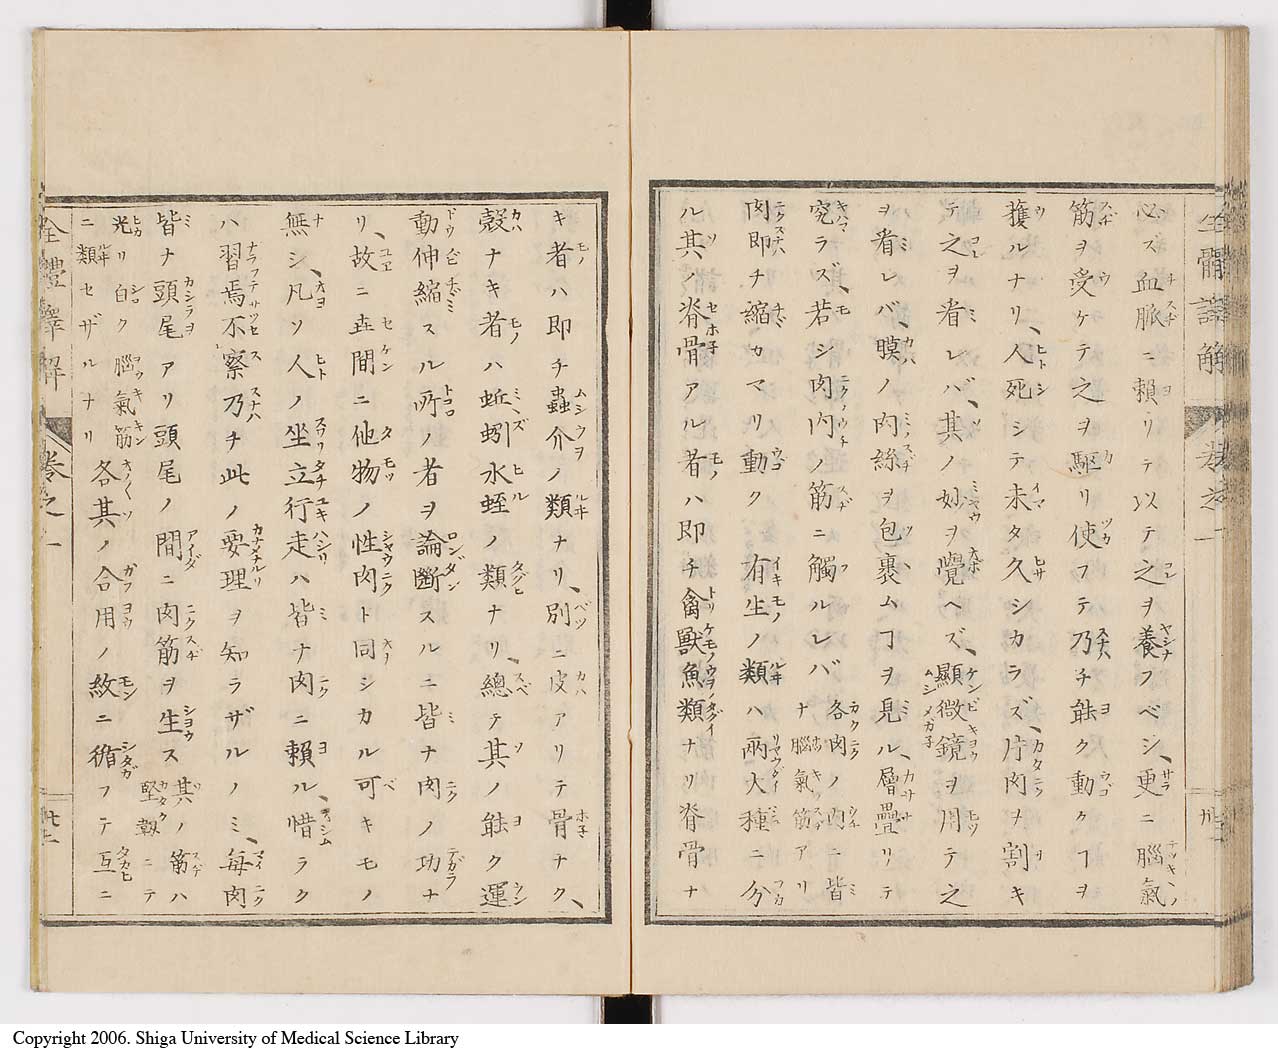 全體譯解 卷之一
必ズ血脈ニ賴リテ以テ之ヲ養フベシ、更ニ腦氣
筋ヲ受ケテ之ヲ駆リ使フテ乃チ能ク動クヿヲ
獲ルナリ、人死シテ未タ久シカラズ、片肉ヲ割キ
テ之ヲ看レバ、其ノ妙ヲ覺ヘズ、顯微鏡ヲ用テ之
ヲ看レバ、膜ノ内絲ヲ包裹ムヿヲ見ル、層疊リテ
究ラズ、若シ肉内ノ筋ニ觸ルレバ 各肉ノ内ニ皆ナ腦氣筋アリ
肉即チ縮カマリ動ク 有生ノ類ハ兩大種ニ分
ル其ノ脊骨アル者ハ即チ禽獸魚類ナリ脊骨ナ
キ者ハ即チ蟲介ノ類ナリ、別ニ皮アリテ骨ナク、
殼ナキ者ハ蚯蚓水蛭ノ類ナリ、總テ其ノ能ク運
動伸縮スル所ノ者ヲ論斷スルニ皆ナ肉ノ功ナ
リ、故ニ世間ニ他物ノ性肉ト同シカル可キモノ
無シ、凡ソ人ノ坐立行走ハ皆ナ肉ニ賴ル、惜ラク
ハ習焉不察乃チ此ノ要理ヲ知ラザルノミ、每肉
皆ナ頭尾アリ頭尾ノ間ニ肉筋ヲ生ス 其ノ筋ハ堅韌ニテ
光リ白ク腦氣筋ニ類セザルナリ 各其ノ合用ノ紋ニ循フテ互ニ
全體譯解 卷之一